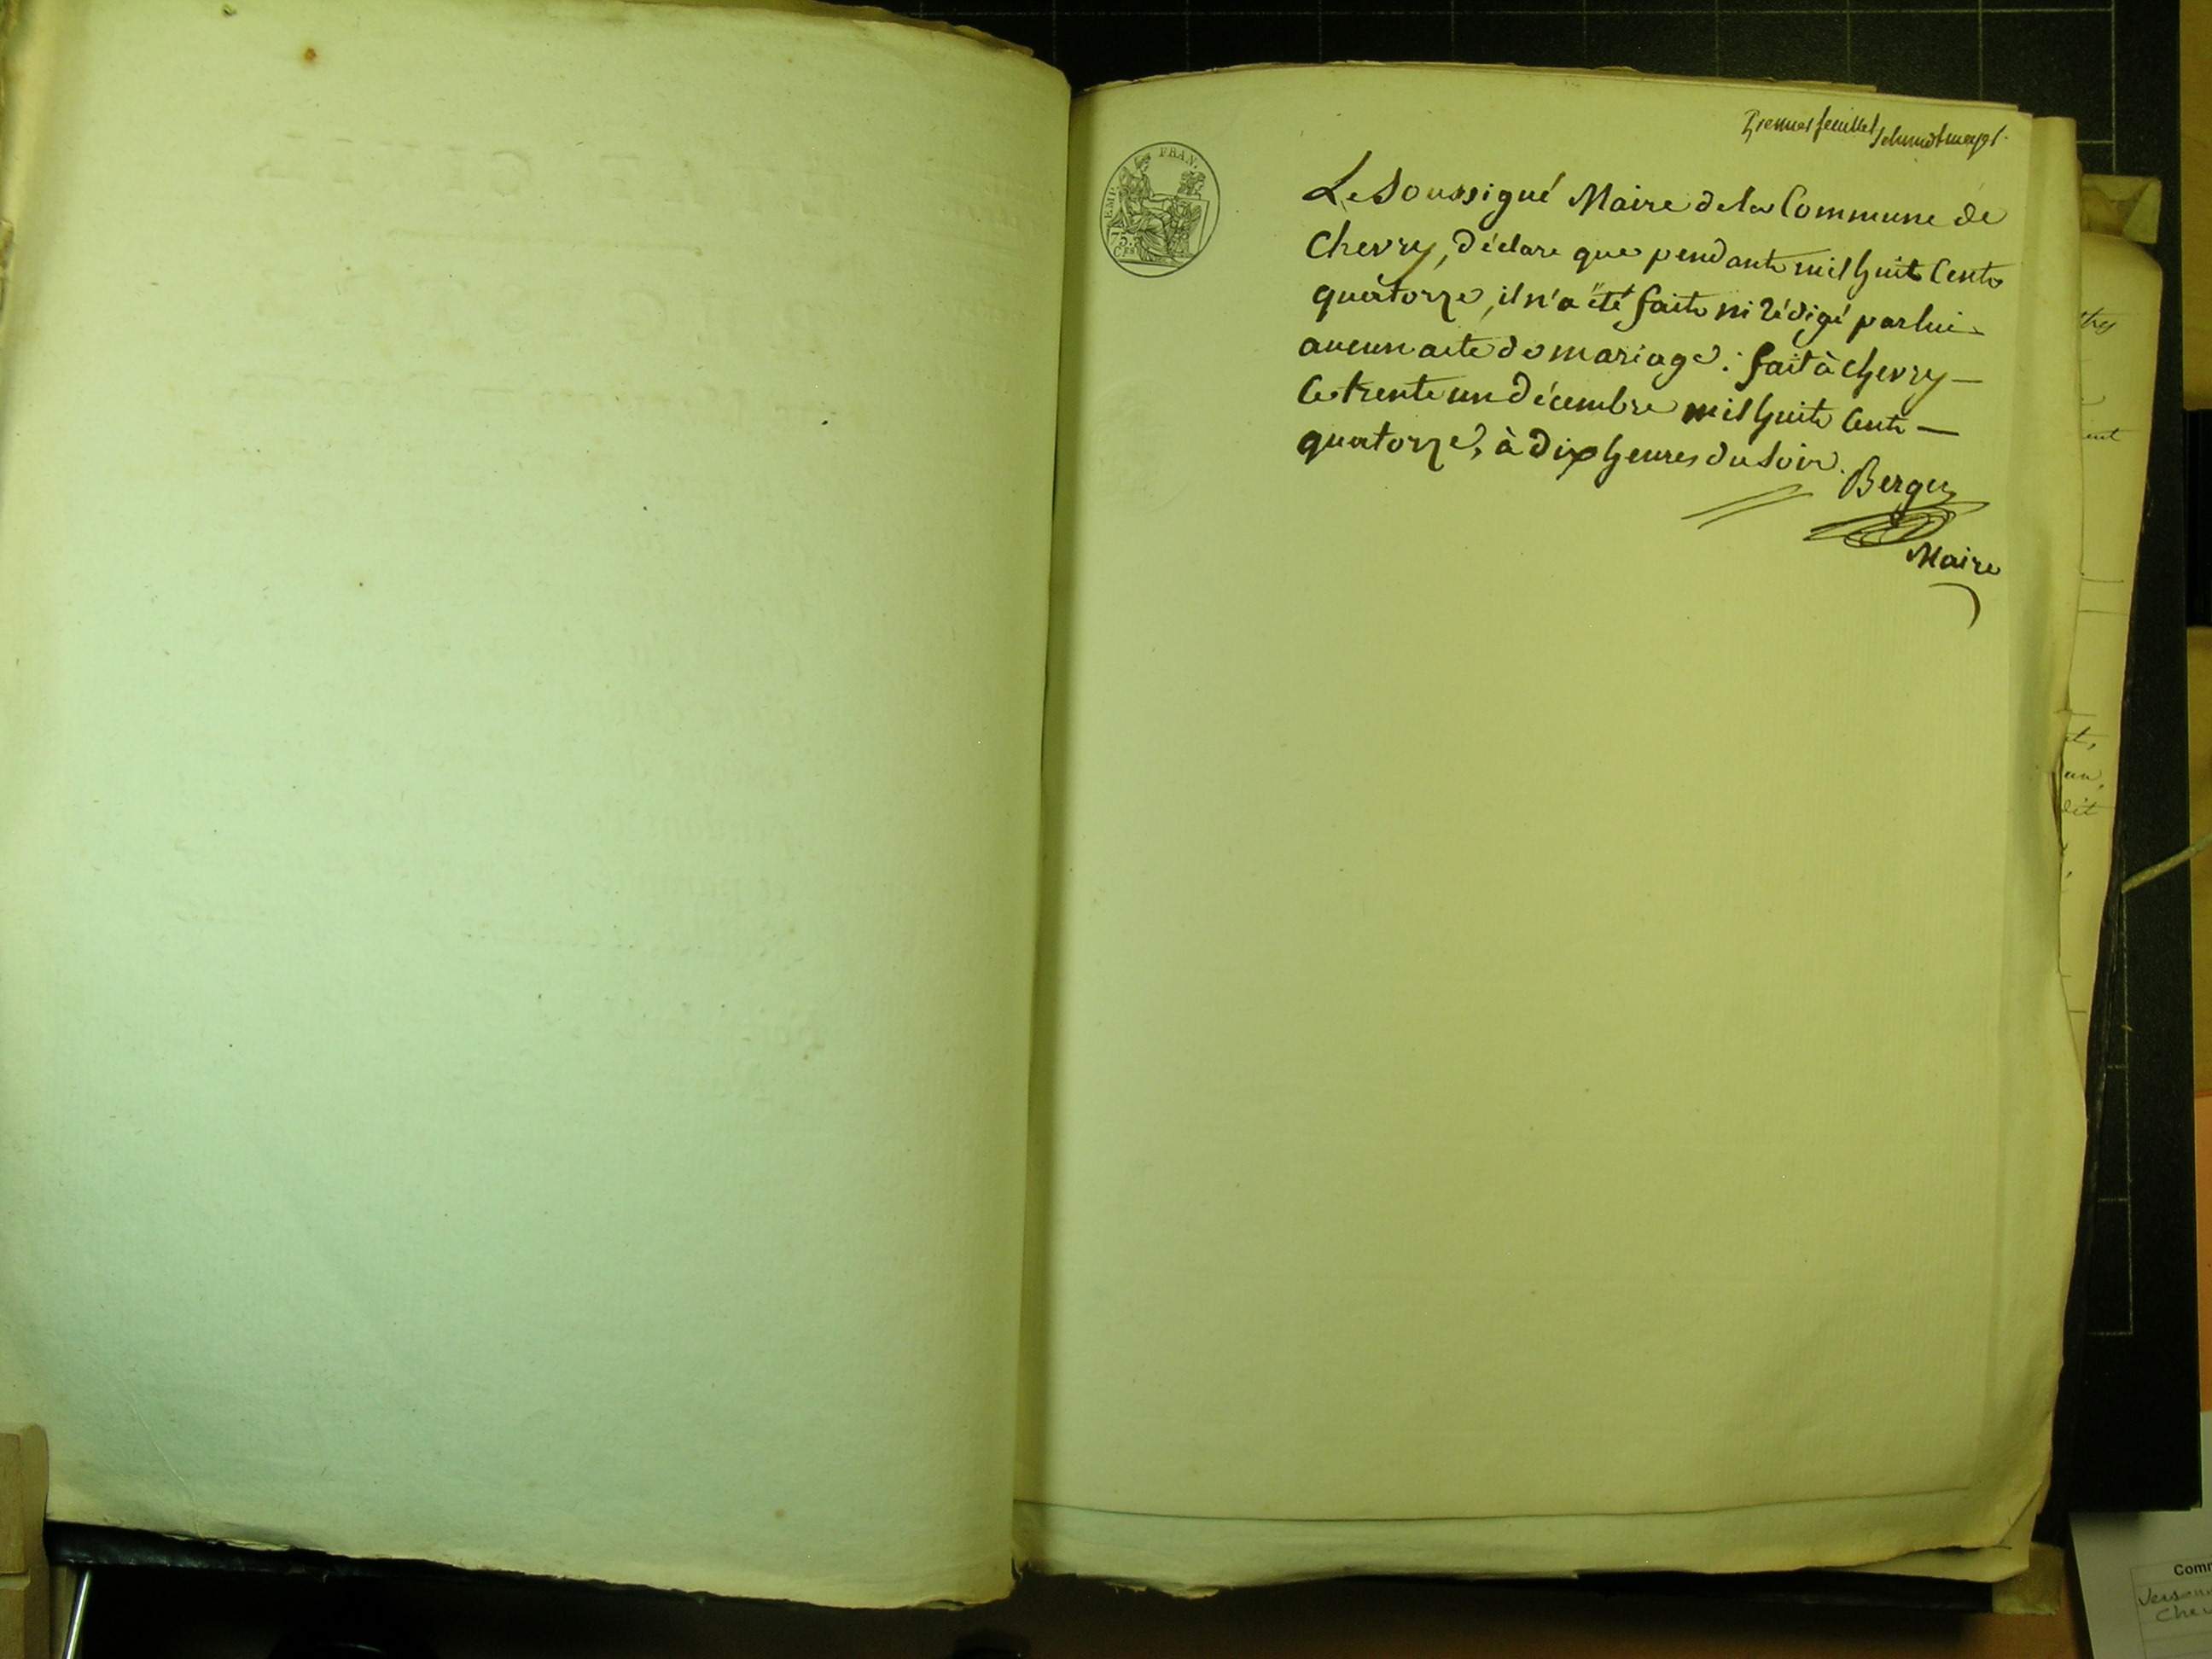 Premier feuillet Schmidtmeyer.
EMP. FRAN.
75.
CES
Le Soussigné Maire de la Commune de
Chevry, déclare que pendant mil huit Cent
quatorze, il n'a été fait ni rédigé par lui
aucun acte de mariage : fait à Chevry —
Ce trente un Décembre mil huit Cent —
quatorze, à dix heures du Soir.
Berger
Maire
Comm
Cher